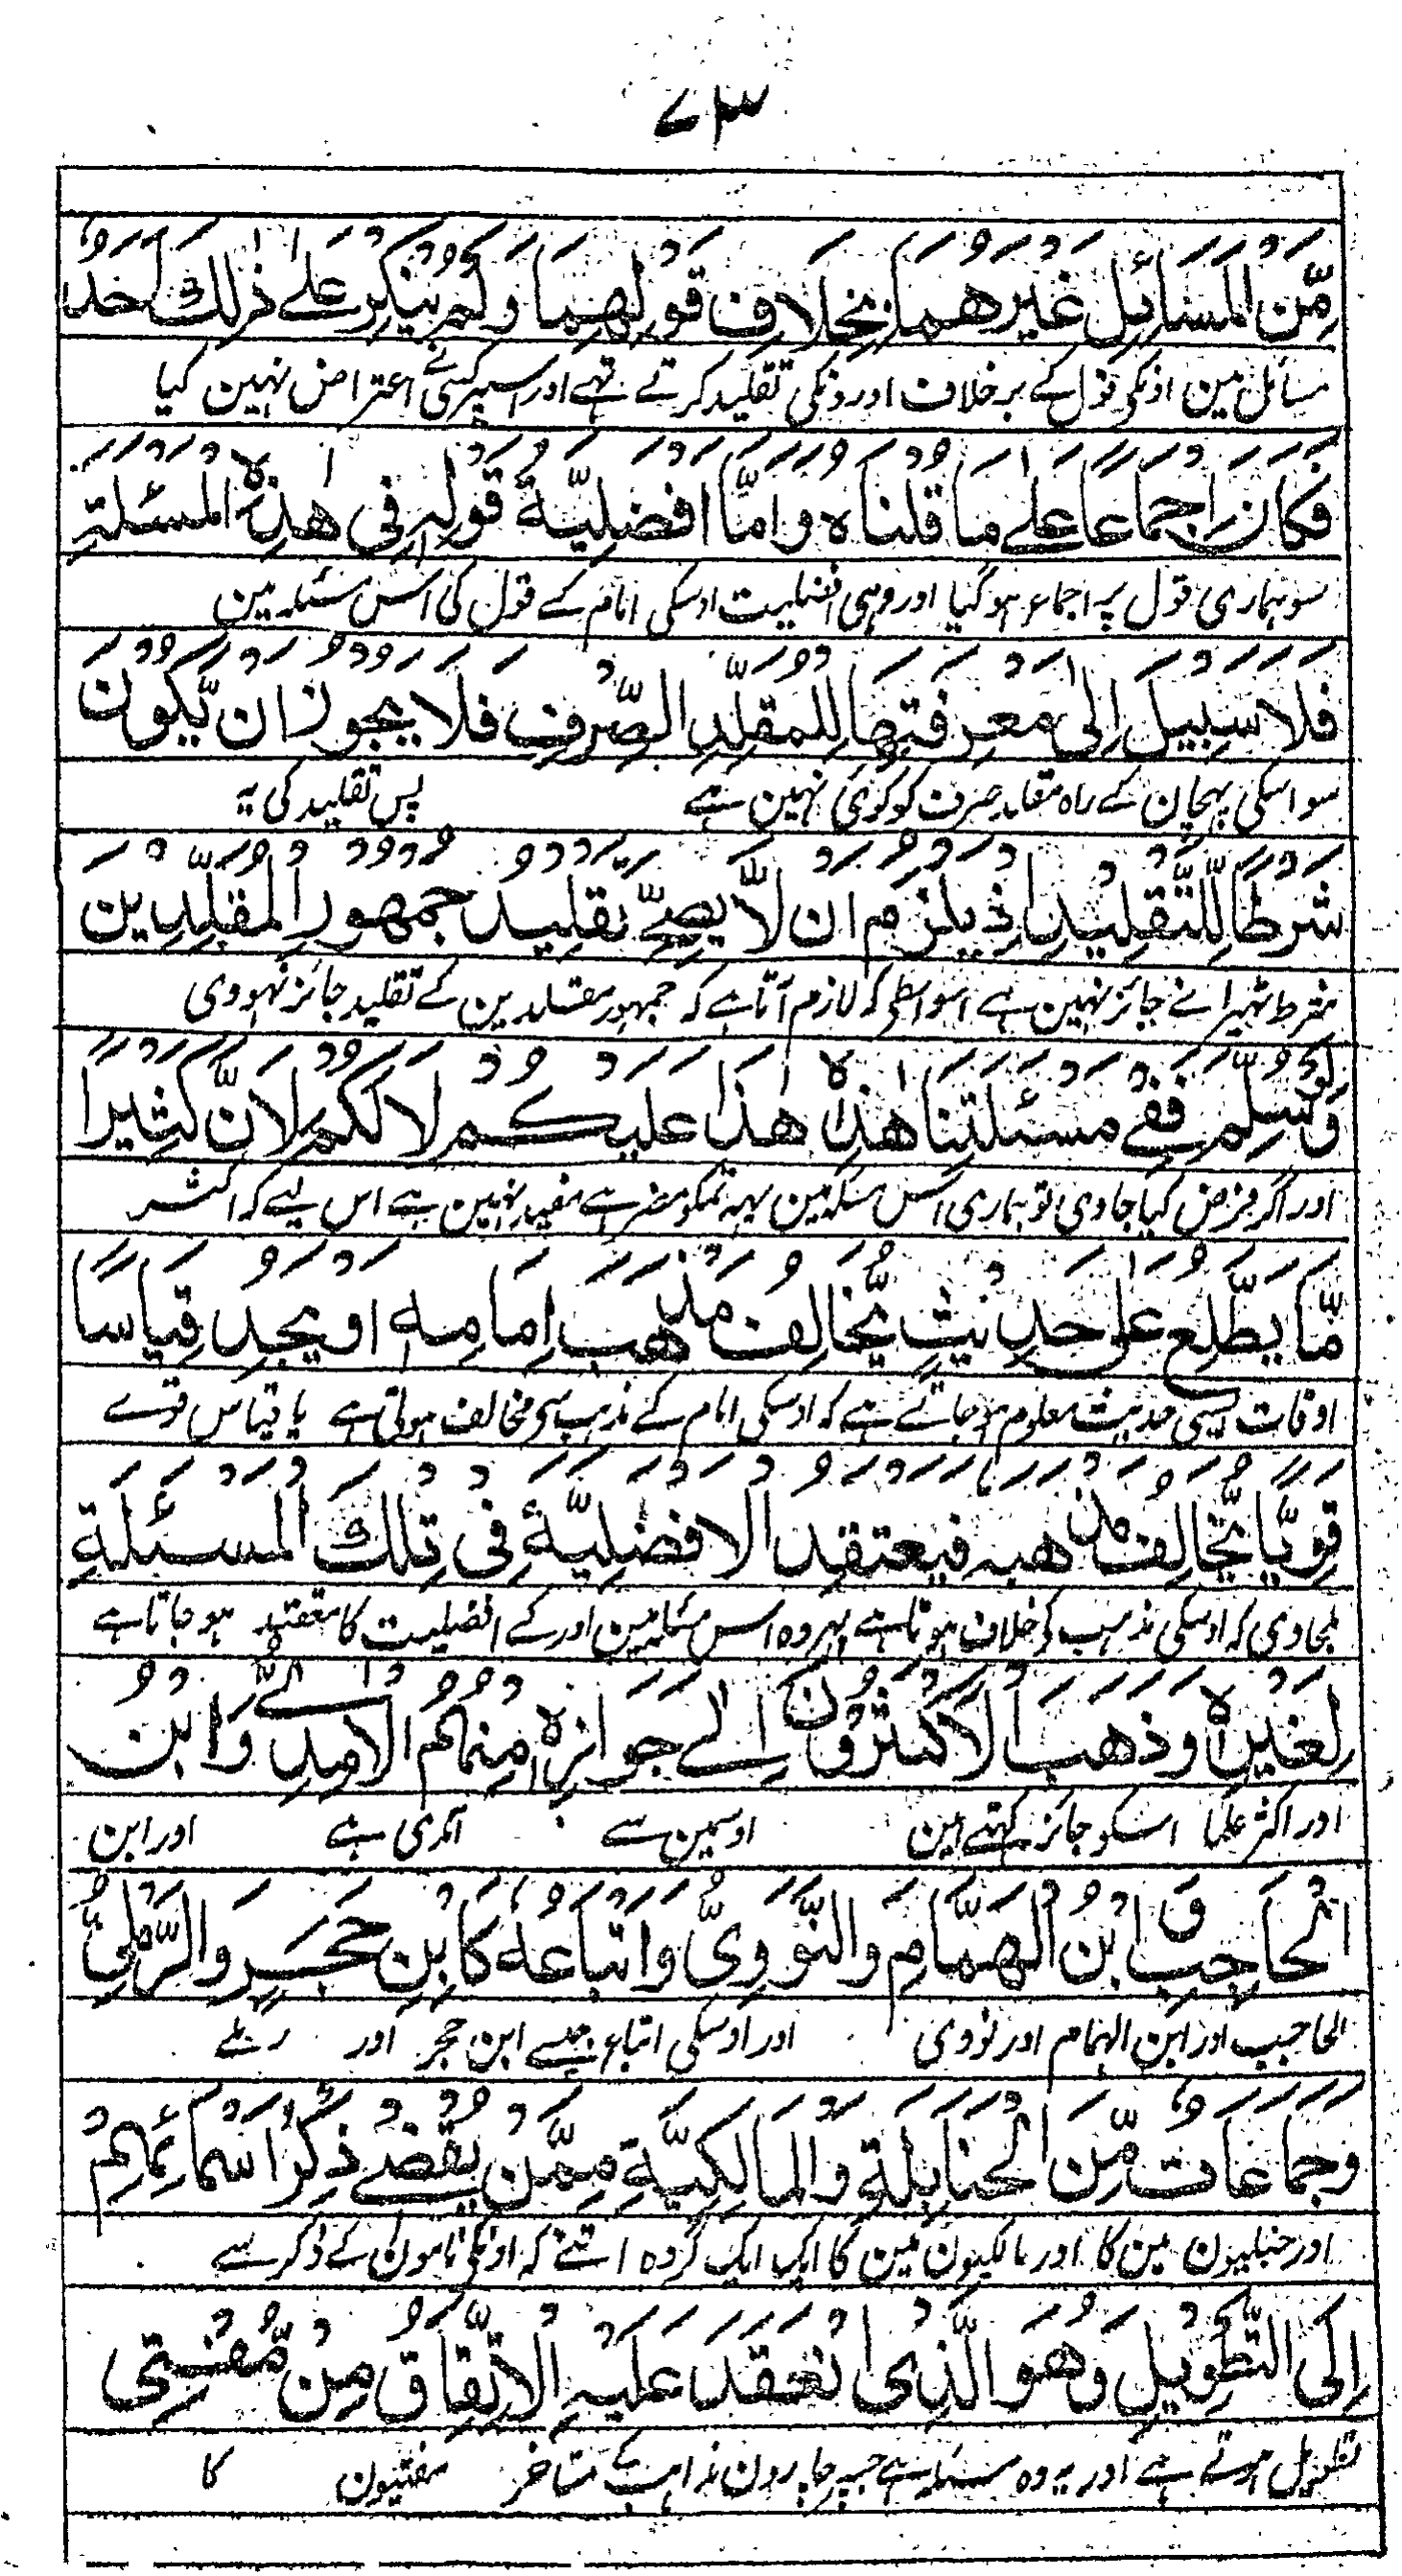 ٧٣
مِّنَ الْمَسَائِلِ غَيْرَهُمَا بِخِلَافِ قَوْلِهِمَا وَلَمْ يُنْكِرْ عَلٰى ذٰلِكَ اَحَدٌ
مسائل مین اونکی قول کے برخلاف اورونکی تقلید کرتے تہے اور اسپر کسی نے اعتراض نہین کیا
فَكَانَ اِجْمَاعًا عَلٰى مَا قُلْنَاهُ وَاَمَّا اَفْضَلِيَّةُ قَوْلِهِ فِى هٰذِهِ الْمَسْئَلَةِ
سو ہماری قول پر اجماع ہو گیا اور وہی افضلیت اوسکی امام کے قول کی اس مسئلہ مین
فَلَا سَبِيْلَ اِلٰى مَعْرِفَتِهَا لِلْمُقَلِّدِ الصِّرْفِ فَلَا يَجُوْزُ اَنْ يَّكُوْنَ
سو اسکی پہچان کے راہ مقلد صرف کو کوئی نہین ہے پس تقلید کی یہ
شَرْطًا لِّلتَّقْلِيْدِ اِذْ يَلْزَمُ اَنْ لَّا يَصِحَّ تَقْلِيْدُ جُمْهُوْرِ الْمُقَلِّدِيْنَ
شرط ٹہیرانے جائز نہین ہے اسواسطی کہ لازم آتا ہے کہ جمہور مقلدین کے تقلید جائز نہووی
وَلَوْ سُلِّمَ فَفِىْ مَسْئَلَتِنَا هٰذِهِ هٰذَا عَلَيْكُمْ لَا لَكُمْ لِاَنَّ كَثِيْرًا
اور اگر فرض کیا جاوی تو ہماری اس مسئلہ مین یہہ تمکو مضر ہے مفید نہین ہے اس لیے کہ اکثر
مَّا يَطَّلِعُ عَلٰى حَدِيْثٍ يُّخَالِفُ مَذْهَبَ اِمَامِهِ اَوْ يَجِدُ قِيَاسًا
اوقات ایسی حدیث معلوم ہو جاتے ہے کہ اوسکی امام کے مذہب سی مخالف ہوتی ہے یا قیاس قوے
قَوِيًّا يُّخَالِفُ مَذْهَبَهُ فَيَعْتَقِدُ الْاَفْضَلِيَّةَ فِىْ تِلْكَ الْمَسْئَلَةِ
ملجاوی کہ اوسکی مذہب کو خلاف ہوتا ہے پہر وہ اس مسئلہ مین اور کے افضلیت کا معتقد ہو جاتا ہے
لِغَيْرِهِ وَذَهَبَ الْاَكْثَرُوْنَ اِلٰى جَوَازِهِ مِنْهُمُ الْاٰمِدِىُّ وَابْنُ
اور اکثر علما اسکو جائز کہتے ہین اوسمین سے آمدی ہے اور ابن
الْحَاجِبِ وَابْنُ الْهُمَامِ وَالنَّوَوِىُّ وَاَتْبَاعُهُ كَابْنِ حَجَرٍ وَالرَّمْلِىُّ
الحاجب اور ابن الہمام اور نووی اور اوسکی اتباع جیسے ابن حجر اور رملے
وَجَمَاعَاتٌ مِّنَ الْحَنَابِلَةِ وَالْمَالِكِيَّةِ مِمَّنْ يُّفْضِىْ ذِكْرُ اَسْمَائِهِمْ
اور حنبلیون مین کا اور مالکیون مین کا ایک ایک گروہ اتنے کہ اونکو نامون کے ذکر سے
اِلَى التَّطْوِيْلِ وَهُوَ الَّذِى انْعَقَدَ عَلَيْهِ الْاِتِّفَاقُ مِنْ مُّفْتِى
تطویل ہوتے ہے اور یہ وہ مسئلہ ہے جسپر چارون مذاہب کے متاخر مفتیون کا